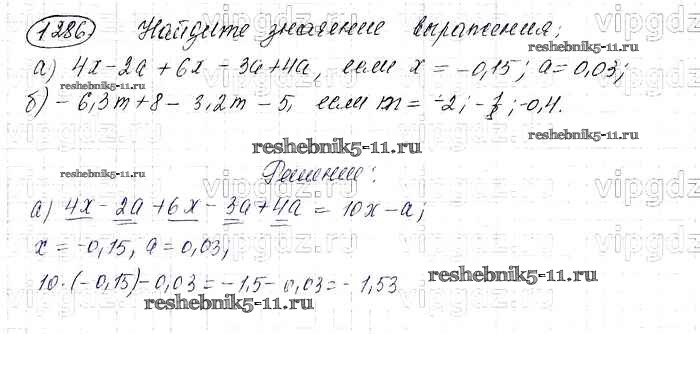 1286 Найдите значение выражения:
а) 4x-2a+6x-3a+4a, если x=-0,15; a=0,03;
б) -6,3m+8-3,2m-5, если m=-2; -; -0,4.
reshebnik5-11.ru
reshebnik5-11.ru
reshebnik5-11.ru
reshebnik5-11.ru
Решение:
а) 4x-2a+6x-3a+4a=10x-a;
x=-0,15, a=0,03;
10·(-0,15)-0,03=-1,5-0,03=-1,53
reshebnik5-11.ru
reshebnik5-11.ru